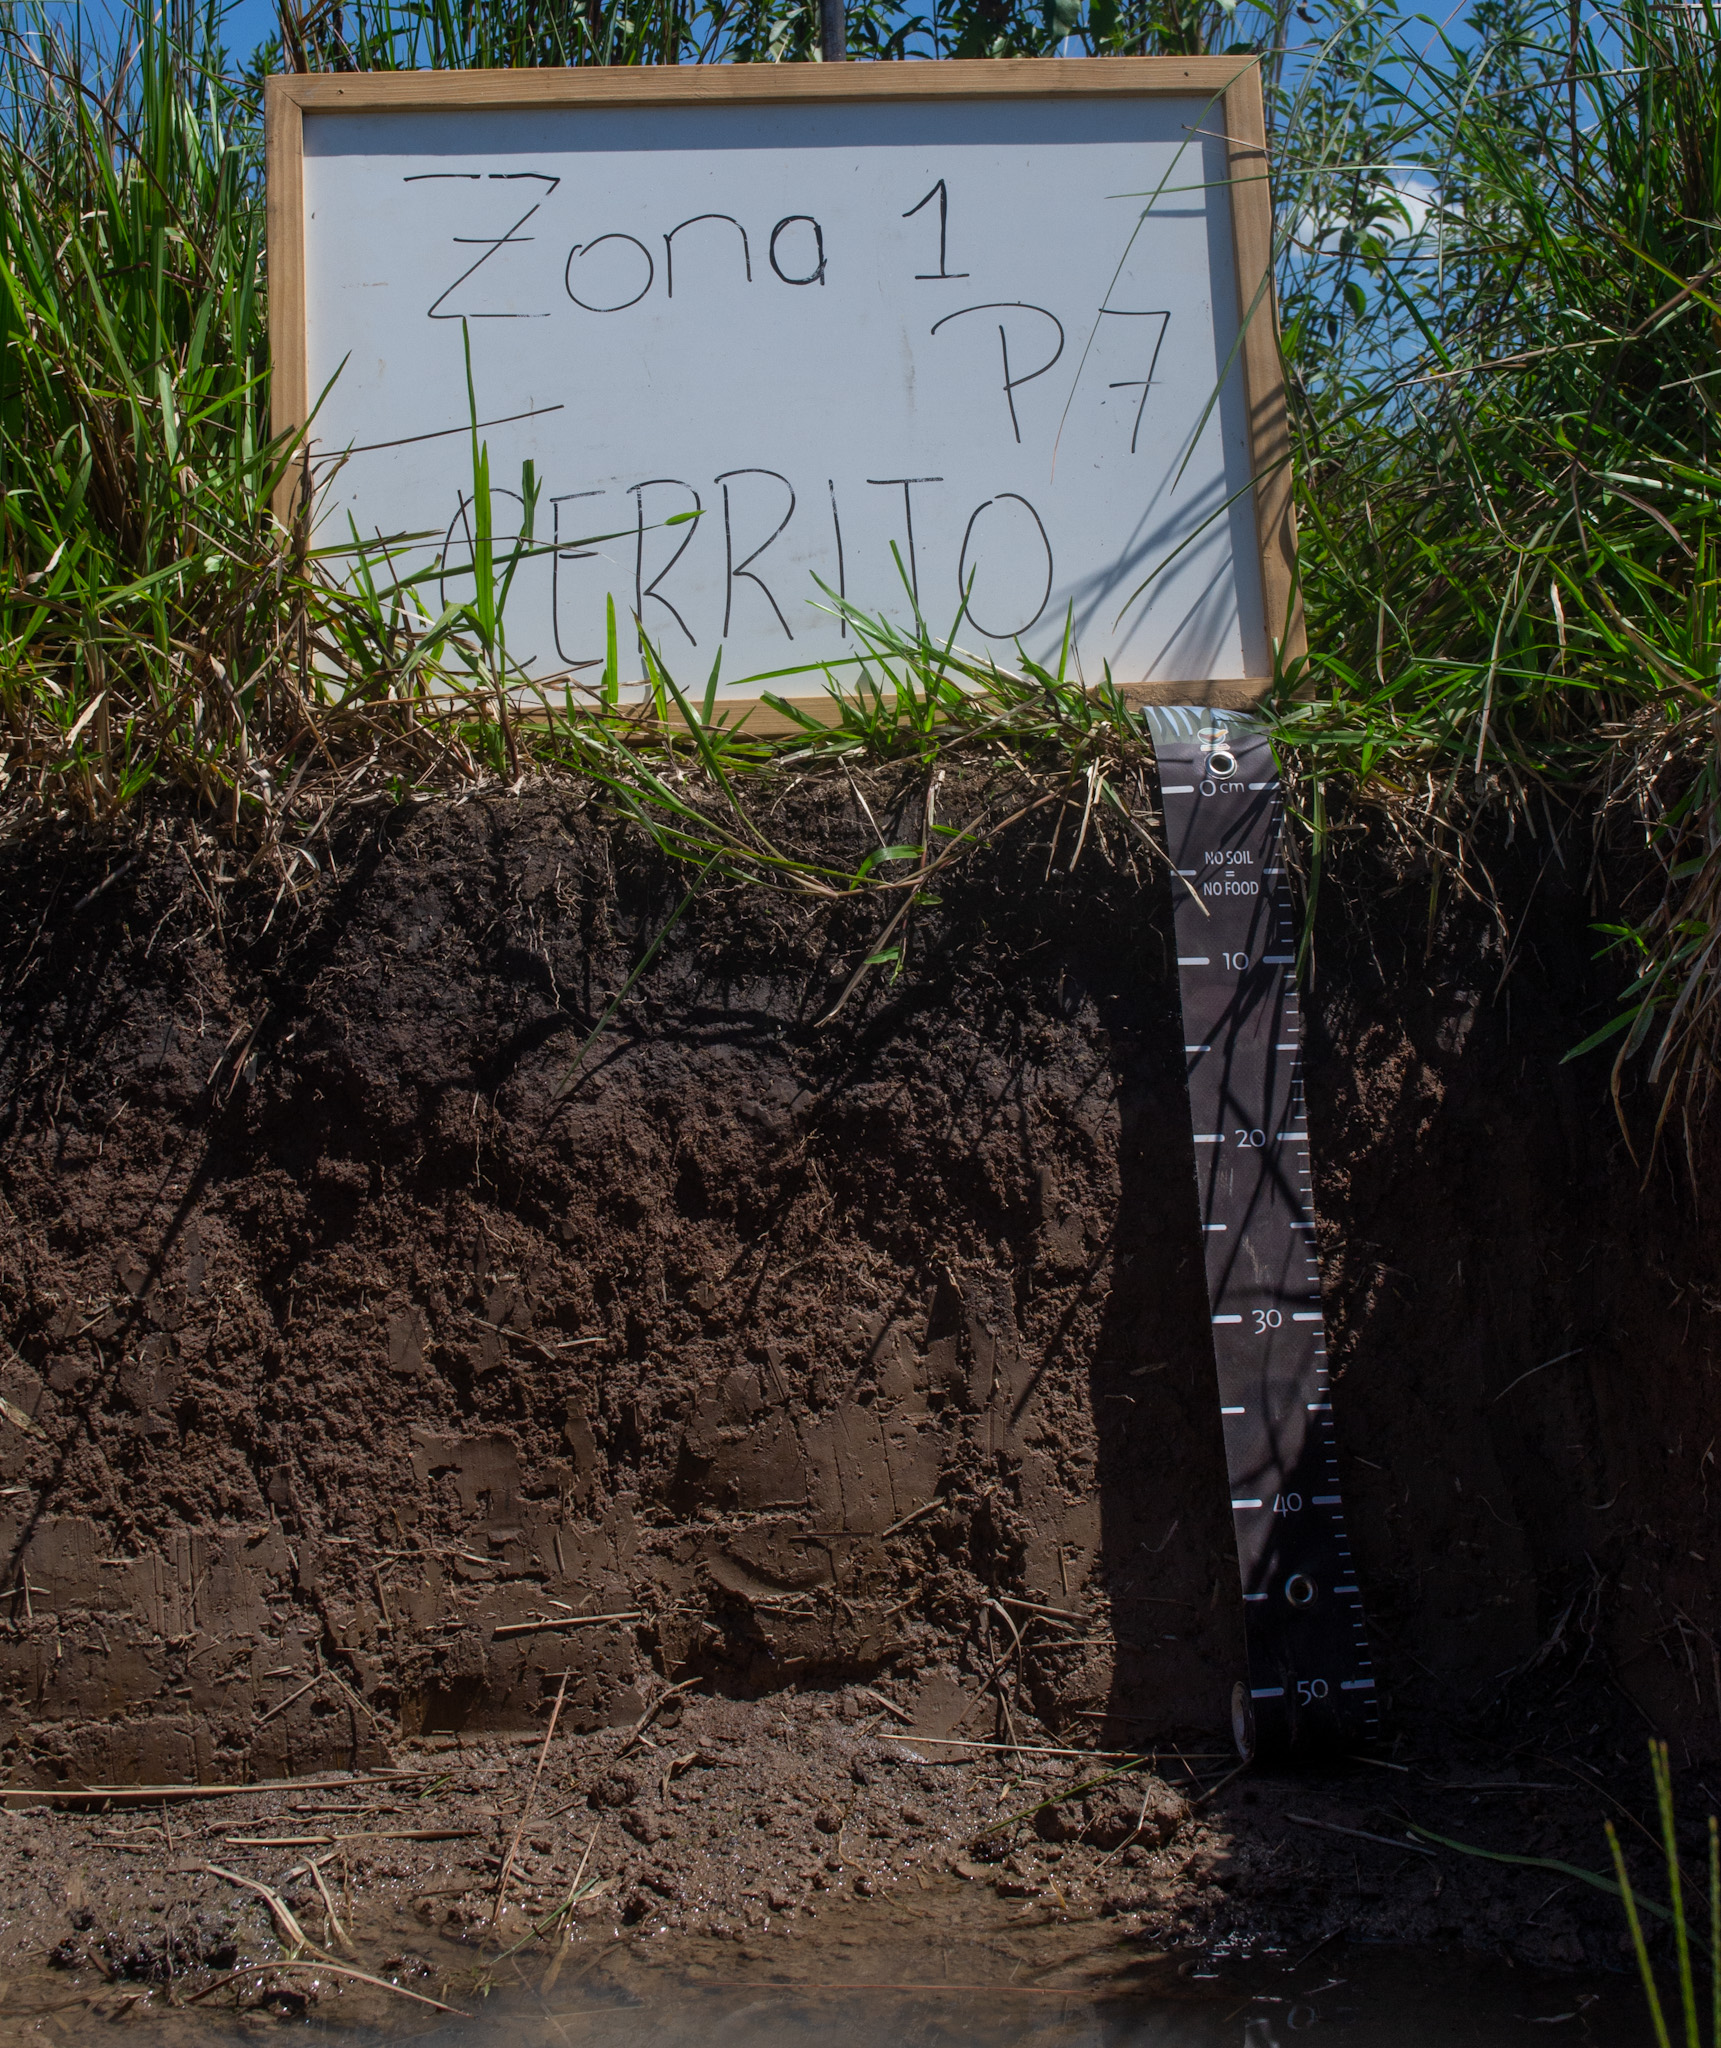 Zona 1
P7
CERRITO
0 cm
NO SOIL
=
NO FOOD
10
20
30
40
50